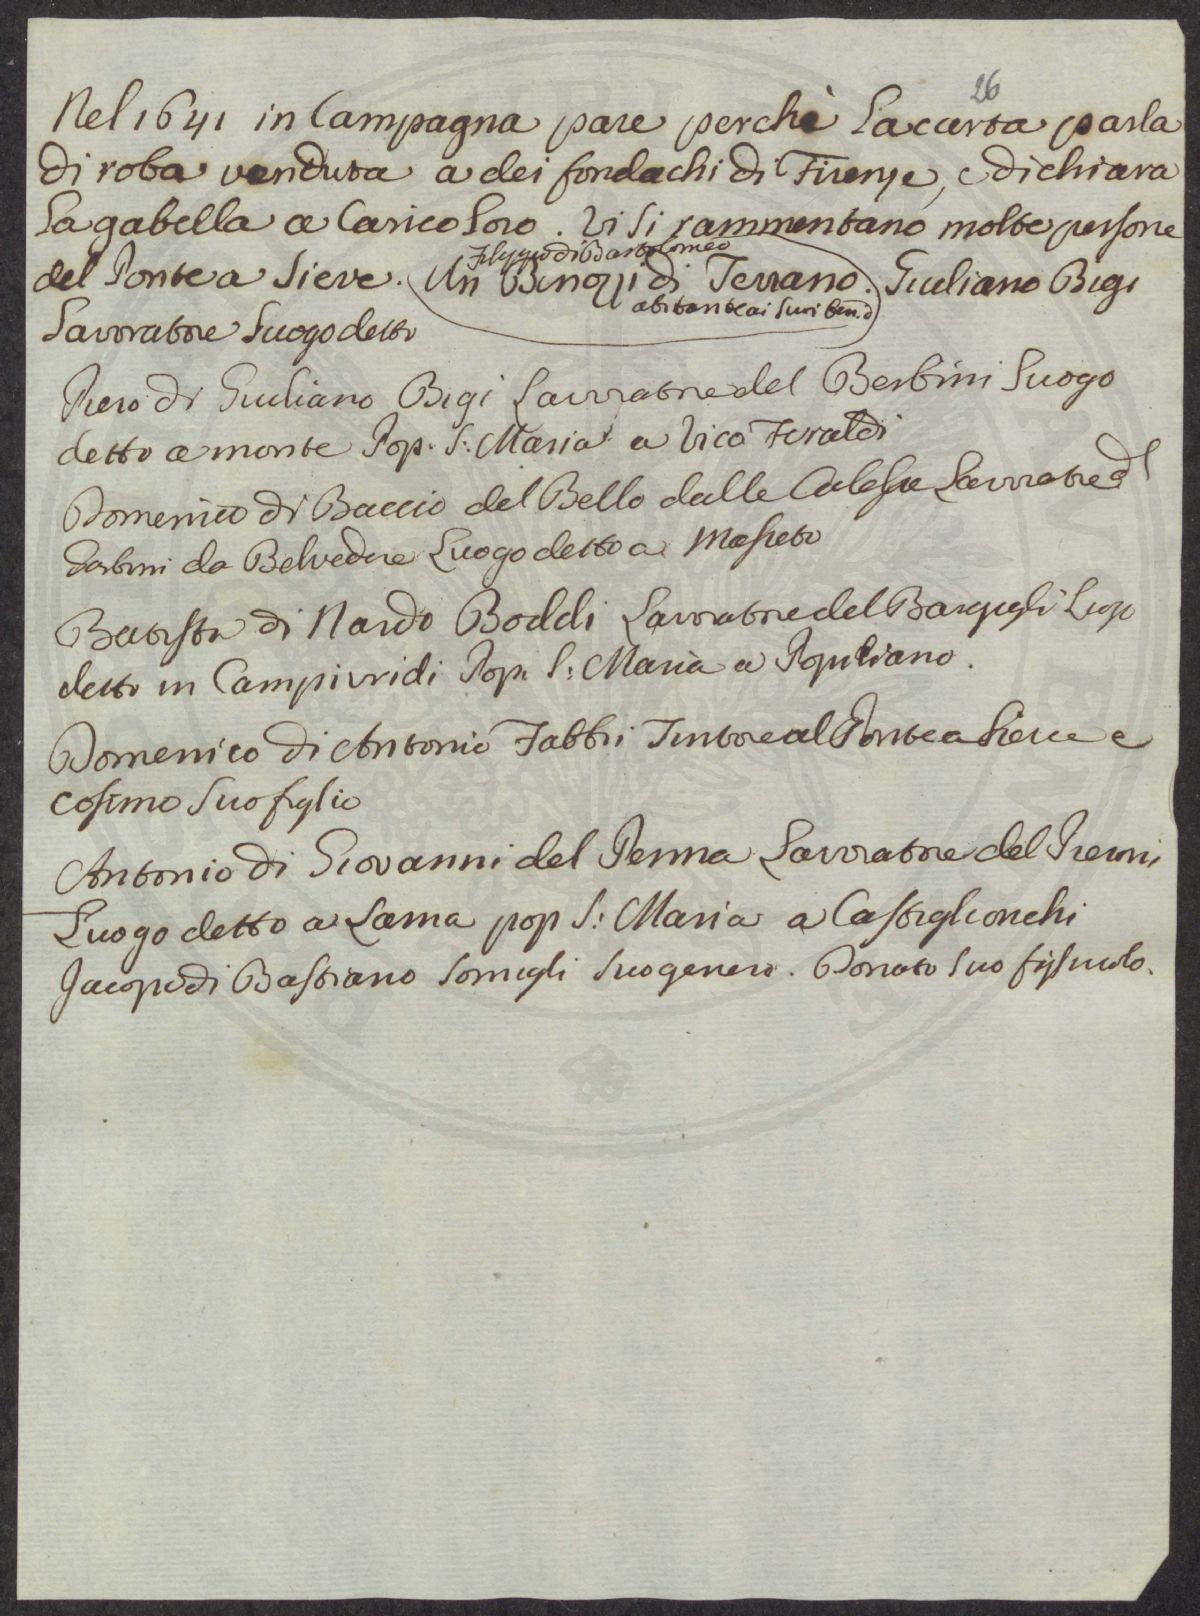 26
Nel 1641 in Campagna pare perchè La carta parla
di roba venduta a dei fondachi di Firenze, e dichiara
La gabella a Carico Loro. Vi Si rammentano molte persone
Filippo di Bartolomeo
del Ponte a Sieve. Un Binozzi di Terrano. Giuliano Bigi
abitante ai Suoi beni
Lavoratore Luogo detto
Piero di Giuliano Bigi Lavoratore del Berbini Luogo
detto a monte Pop. S: Maria a Vico Feraldi
Domenico di Baccio del Bello dalle Calesse Lavoratore dl
da Belvedere Luogo detto a Masseto
Batista di Nardo Boddi Lavoratore del Bargigli Luogo
detto in Campiuridi Pop. S: Maria a Popigliano.
Domenico di Antonio Fabbri Tintore al Ponte a Sieve e
Cosimo Suo figlio
Antonio di Giovanni del Penna Lavoratore del
Luogo detto a Lama pop S: Maria a Castiglionchi
Jacopo di Bastiano Somigli Suo genero. Donato Suo figliuolo.